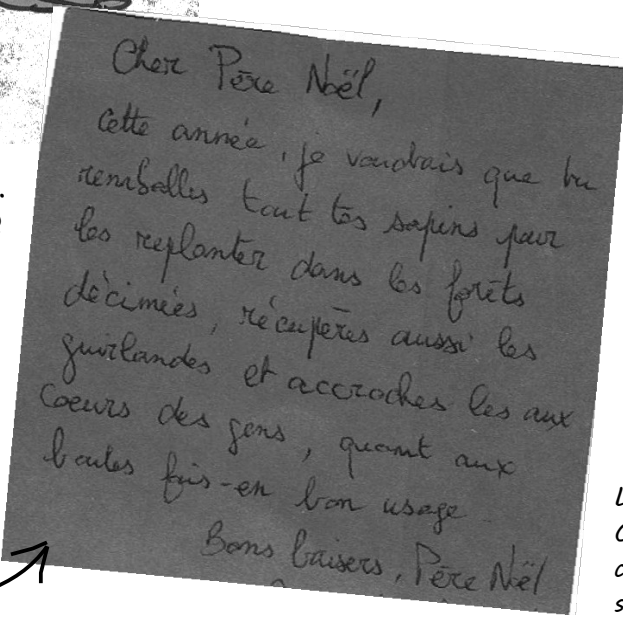 Cher Père Noël,
Cette année, je voudrais que tu
remballes tout tes sapins pour
les replanter dans les forêts
décimées, récupères aussi les
guirlandes et accroches les aux
coeurs des gens, quant aux
boules fais-en bon usage.
Bons baisers, Père Noël